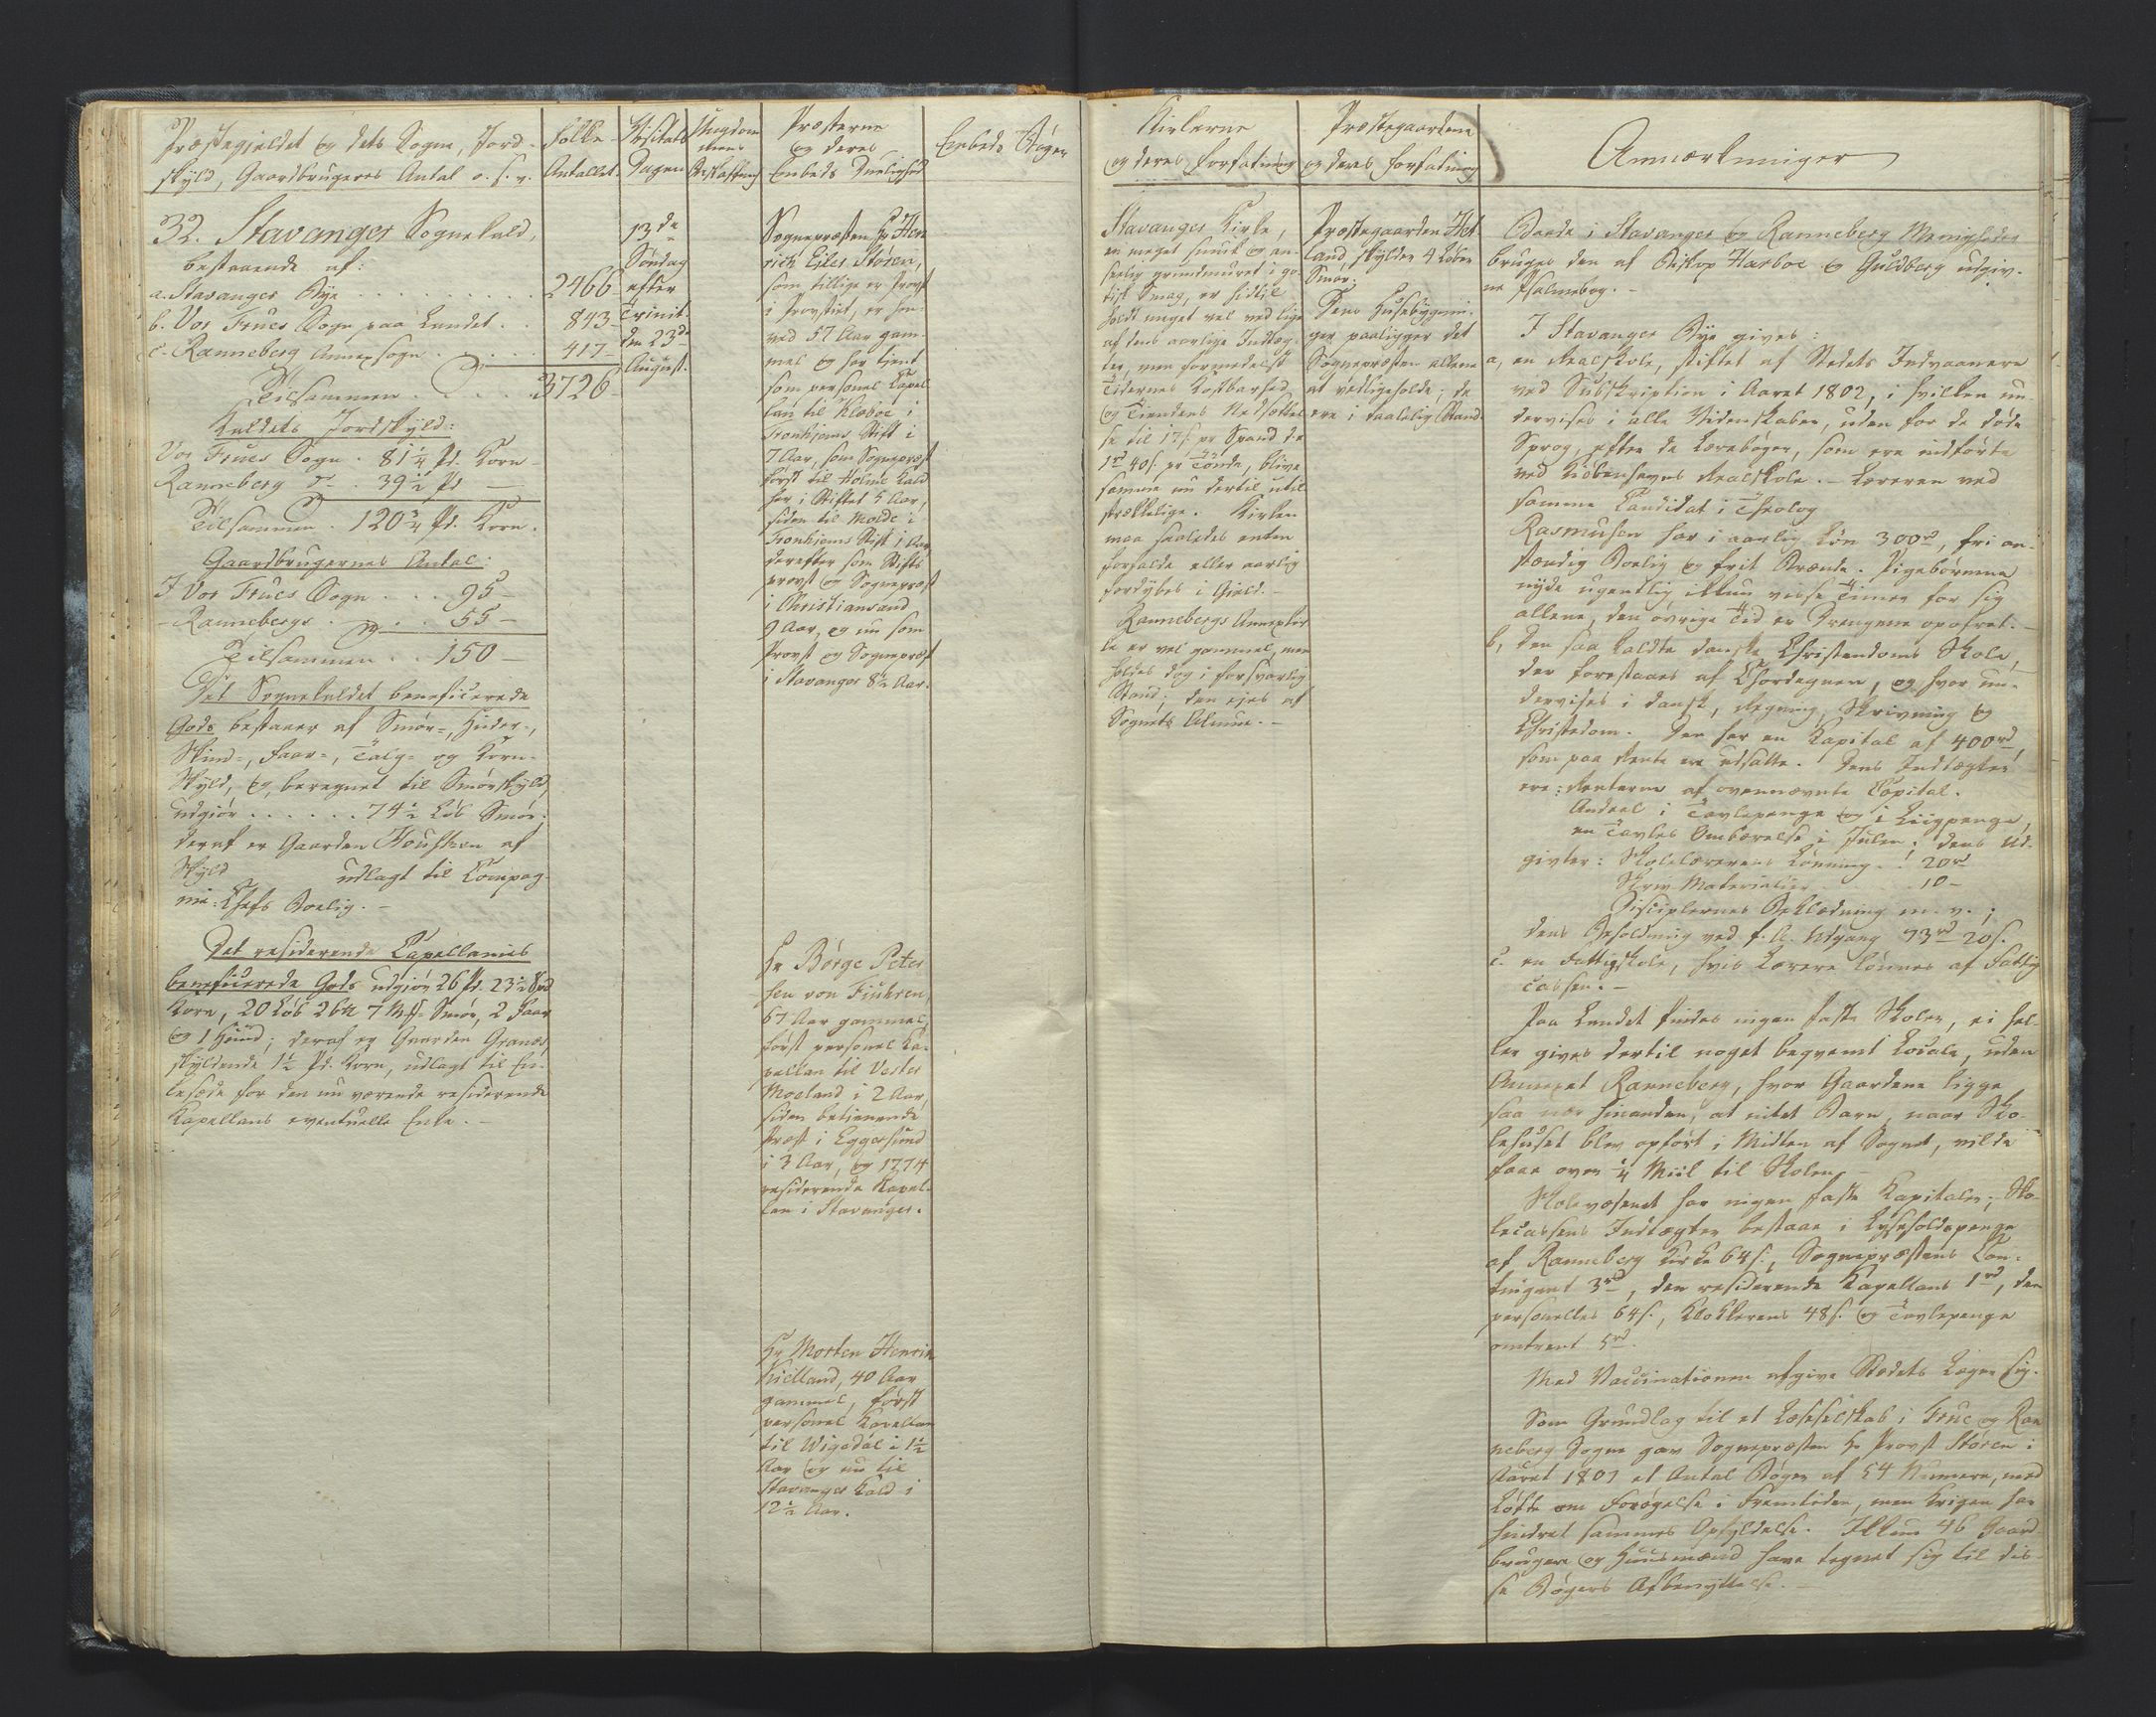 Præstegjeldet og dets Sogne, Jord-
skyld, Gaardbrugeres Antal o. s. v.
Folke-
Antallet.
Visitats
Dagen
Ungdom-
mens
Beskaffenhed
Præsterne
og deres
Embeds Duelighed
Embeds Bøger
Kirkerne
og deres Forfatning
Præstegaardene
og deres Forfatning
Anmærkninger
32. Stavanger Sognekald,
bestaaende af:
a. Stavanger Bye . . . 2466
b. Vor Frues Sogn paa Landet . . 843
c. Ranneberg Annexsogn . . . 417
Tilsammen . . . 3726
Kaldets Jordskyld:
Vor Frues Sogn . 81 1/4 Pd. Korn
Ranneberg do . 39 1/2 Pd —
Tilsammen . 120 3/4 Pd. Korn.
Gaardbrugernes Antal:
I Vor Frues Sogn . . . 95 —
- Rannebergs . . . 55 —
Tilsammen . . 150 —
Det Sognekaldet beneficerede
Gods bestaaer af Smør-, Huder-,
Skind-, Faar-, Talg- og Korn-
Skyld, og, beregnet til Smørskyld,
udgiør . . . . . . 74 1/2 Løb Smør;
deraf er Gaarden af
Skyld udlagt til Compag-
nie-Chefs Bolig. —
Det residerende Capellanies
beneficerede Gods udgiør 26 Pd. 23 1/2
Korn, 20 Løb 2 7 Smør, 2 Faar
og 1 Huud; deraf er Gaarden Granes,
skyldende 1 1/2 Pd. Korn, udlagt til En-
kesæde for den nu værende residerende
Kapellans eventuelle Enke. —
13de
Søndag
efter
Trinit.
den 23de
August.
Sognepræsten Hr Hen
rich Eiler Støren,
som tillige er Provst
i Provstiet, er hen-
ved 57 Aar gam-
mel og har tient
som personel Capel
lan til Klæboe i
Tronhjems Stift i
7 Aar, som Sognepræst
først til Holme Kald
her i Stiftet 5 Aar,
siden til Molde i
Tronhjems Stift Aar
derefter som Stifts
provst og Sognepræst
i Christiansand
9 Aar, og nu som
Provst og Sognepræst
i Stavanger 8 1/2 Aar.
Hr Børge Peter
sen von Führen,
67 Aar gammel,
først personel Ka-
pellan til Vester
Moeland i 2 Aar,
siden betienende
Præst i Eggersund
i 3 Aar, og 1774
residerende Kapel-
lan i Stavanger.
Hr Morten Henrik
Kielland, 40 Aar
gammel, først
personel Kapellan
til Wigedal i 1 1/2
Aar og nu til
Stavanger Kald i
12 1/2 Aar.
Stavanger Kirke,
en meget smuk og an-
seelig grundmuret i go-
tisk Smag, er hidtil
holdt meget vel ved lige
af dens aarlige Indtæg-
ter, men formedelst
Tidernes Kostbarhed
og Tiendens Nedsættel
se til 17 s. pr Spand
1rd 40 s. pr Tønde, blive
samme nu dertil util-
strækkelige. Kirken
maa saaledes enten
forfalde eller aarlig
fordybes i Gield. —
Rannebergs Annexkir
ke er vel gammel, men
holdes dog i forsvarlig
Stand; den eies af
Sognets Almue. —
Præstegaarden Het
land, skylder 4 Løber
Smør.
Dens Huusebygnin-
ger paaligger det
Sognepræsten allene
at vedligeholde; de
ere i taalelig Stand.
Baade i Stavanger og Ranneberg Menigheder
bruges den af Biskop Harboe og Guldberg udgiv-
ne Psalmebog. —
I Stavanger Bye gives:
a, en Realskole, stiftet af Stedets Indvaanere
ved Subskription i Aaret 1802, i hvilken un-
dervises i alle Videnskaber, uden for de døde
Sprog, efter de Lærebøger, som ere indførte
ved Kiøbenhavns Realskole. — Læreren ved
samme Candidat i Theolog
Rasmusen har i aarlig Løn 300rd, fri an-
stændig Bolig og frit Brænde. Pigebørnene
nyde ugentlig ikkun visse Timer for sig
allene, den øvrige Tid er Drengene opofret. —
b, Den saa kaldte danske Christendoms Skole,
der forestaaes af Chordegnen, og hvor un-
dervises i dansk, Regning, Skrivning og
Christendom. Den har en Kapital af 400rd,
som paa Rente ere udsatte. Dens Indtægter
ere: Renterne af ovennævnte Capital.
Andeel i Tavlepenge og i Liigpenge,
en Tavles Ombærelse i Julen; dens Ud-
givter: Skolelærerens Lønning . . 20rd
Skriv Materialier . . . 10 —
Disciplernes Beklædning m. v.;
dens Beholdning ved f. A. Udgang 73rd 20 s.
c. en Fattigskole, hvis Lærere lønnes af Fattig
Cassen. —
Paa Landet findes ingen faste Skoler, ei hel-
ler gives dertil noget beqvemt Locale, uden
Annexet Ranneberg, hvor Gaardene ligge
saa nær hinanden, at intet Barn, naar Sko-
lehuset blev opført i Midten af Sognet, vilde
faae over 1/4 Miil til Skolen. —
Skolevæsenet har ingen faste Kapitaler; Sko-
lecassens Indtægter bestaae i Lysholdspenge
af Ranneberg Kirke 64 s., Sognepræstens Con-
tingent 3rd, den residerende Kapellans 1rd, den
personelles 64 s., Klokkerens 48 s. og Tavlepenge
omtrent 5rd.
Med Vaccinationen afgive Stedets Læger sig.
Som Grundlag til et Læseselskab i Frue og Ran
neberg Sogne gav Sognepræsten Hr Provst Støren i
Aaret 1807 et Antal Bøger af 54 Numere, med
Løfte om Forøgelse i Fremtiden, men Krigen har
hindret sammes Opfyldelse. Ikkun 46 Gaard
brugere og Huusmænd have tegnet sig til dis-
se Bøgers Afbenyttelse. —